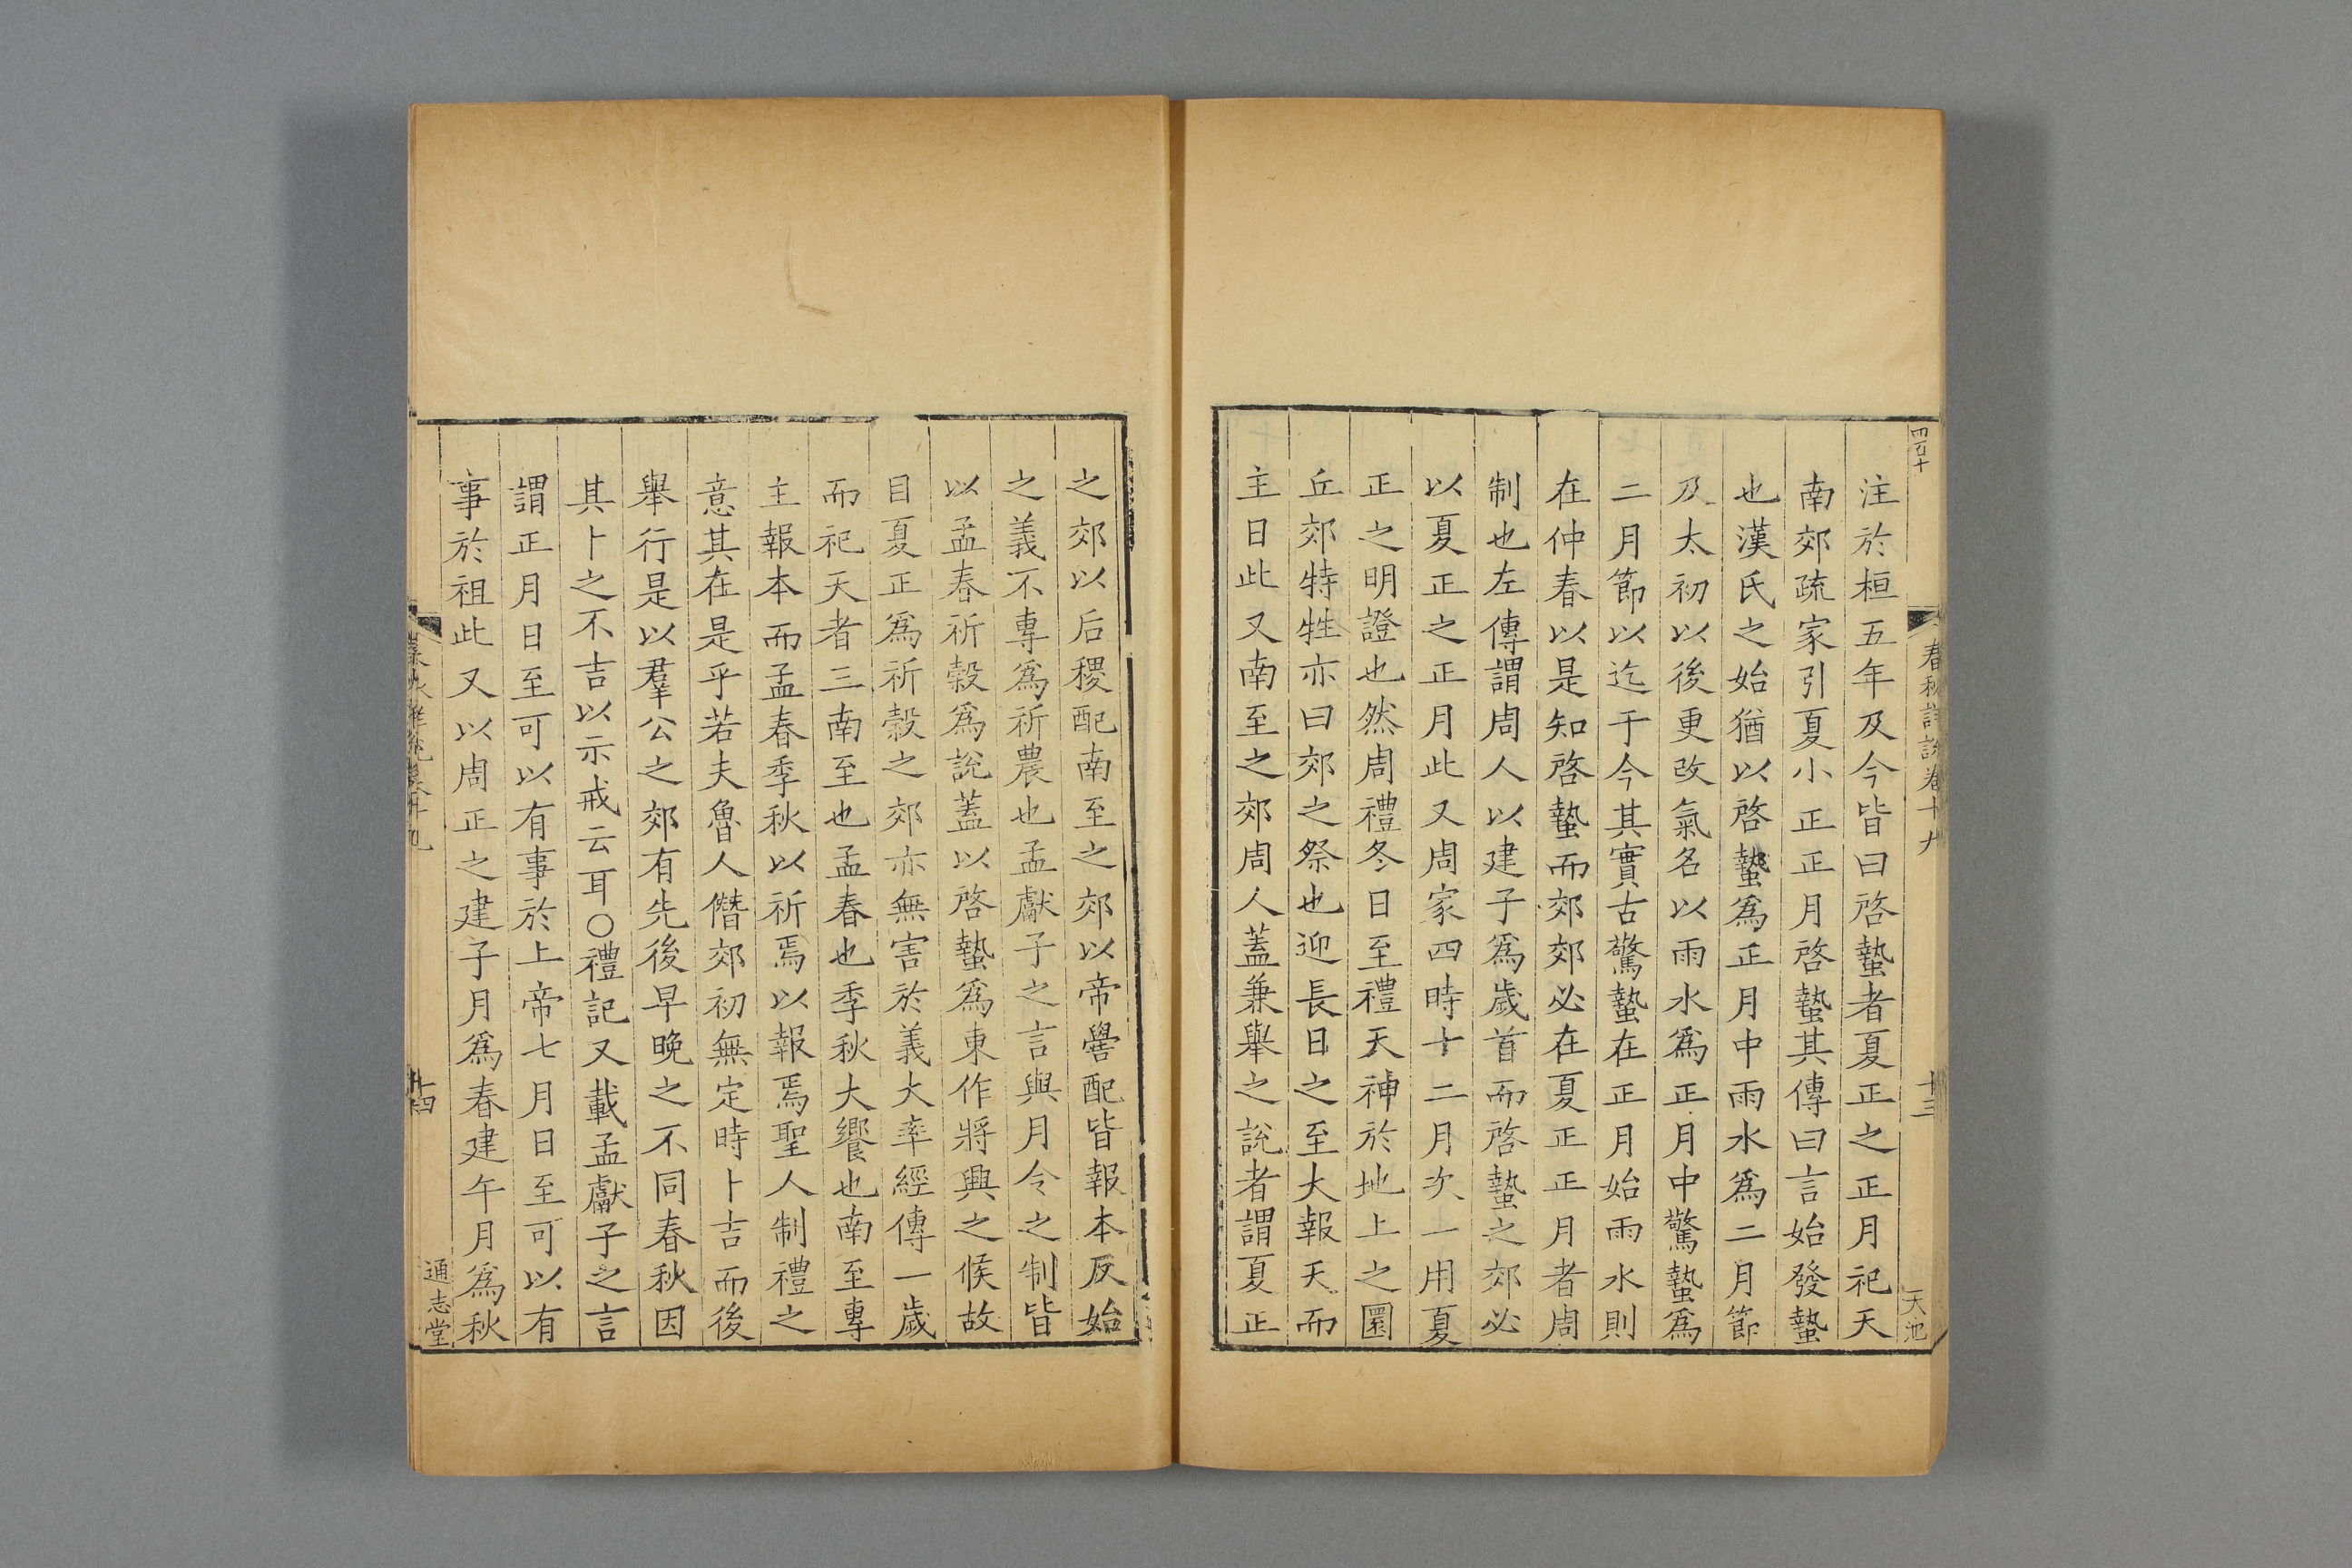 四百十
春秋詳說卷十九
十三
天池
注於桓五年及今皆曰啓蟄者夏正之正月祀天
南郊疏家引夏小正正月啓蟄其傳曰言始發蟄
也漢氏之始猶以啓蟄爲正月中雨水爲二月節
及太初以後更改氣名以雨水爲正月中驚蟄爲
二月節以迄于今其實古驚蟄在正月始雨水則
在仲春以是知啓蟄而郊郊必在夏正正月者周
制也左傳謂周人以建子爲歲首而啓蟄之郊必
以夏正之正月此又周家四時十二月次一用夏
正之明證也然周禮冬日至禮天神於地上之圜
丘郊特牲亦曰郊之祭也迎長日之至大報天而
主日此又南至之郊周人蓋兼舉之說者謂夏正
之郊以后稷配南至之郊以帝嚳配皆報本反始
之義不專爲祈農也孟獻子之言與月令之制皆
以孟春祈穀爲說蓋以啓蟄爲東作將興之候故
目夏正爲祈穀之郊亦無害於義大率經傳一歲
而祀天者三南至也孟春也季秋大饗也南至專
主報本而孟春季秋以祈焉以報焉聖人制禮之
意其在是乎若夫魯人僭郊初無定時卜吉而後
舉行是以羣公之郊有先後早晚之不同春秋因
其卜之不吉以示戒云耳〇禮記又載孟獻子之言
謂正月日至可以有事於上帝七月日至可以有
事於祖此又以周正之建子月爲春建午月爲秋
十四
通志堂